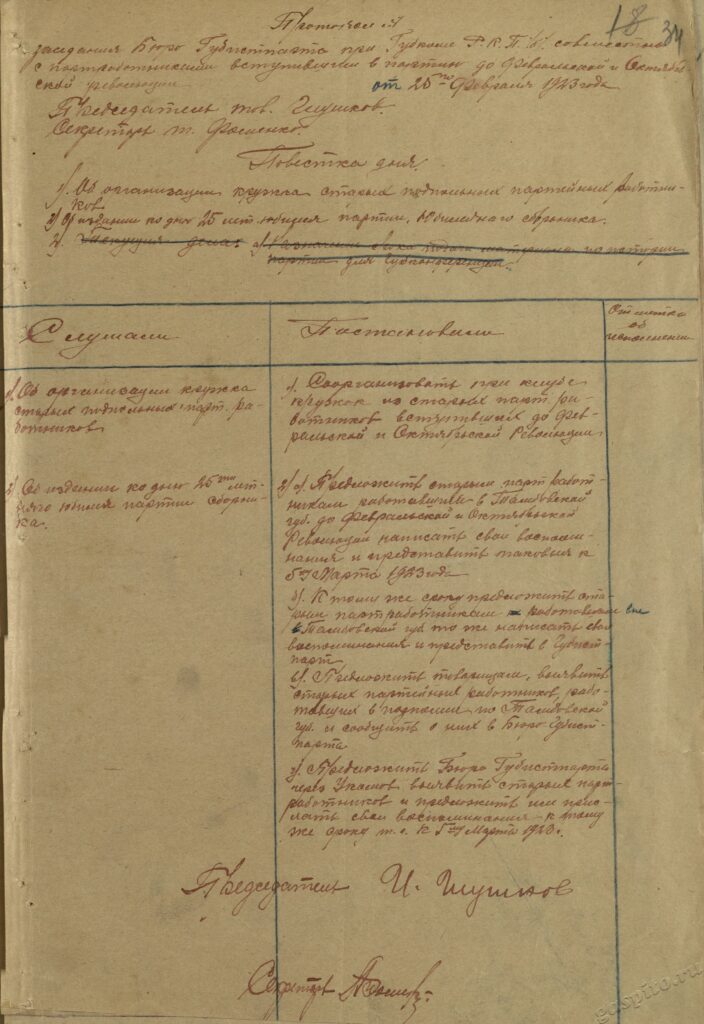 18 34
Протокол №
заседания Бюро Губистпарта при Губкоме Р.К.П.(б). совместно
с партработниками вступившими в партию до Февральской и Октябрь-
ской революции от 25го Февраля 1923 года
Председатель тов. Шушков.
Секретарь т. Фоменко.
Повестка дня.
1). Об организации кружка старых подпольных партийных работни-
ков
2) Об издании ко дню 25 лет. юбилея партии. Юбилейного сборника.
3). Текущия дела. по истории
партии для Губконференции.
Слушали
Постановили
Отметка
об
исполнении
1). Об организации кружка
старых подпольных парт. ра-
ботников
1). Соорганизовать при клубе
кружок из старых парт. ра-
ботников вступивших до Фев-
ральской и Октябрьской Революции
2) Об издании ко дню 25ти лет-
няго юбилея партии сборни-
ка.
2) а). Предложить старым парт работ-
никам работавшим в Тамбовской
губ. до Февральской и Октябрьской
Революций написать свои воспоми-
нания и представить таковыя к
5му Марта 1923 года
б). К тому же сроку предложить ста-
рым партработникам работавшим вне
Тамбовской губ то же написать свои
воспоминания и представить в Губист-
парт
в). Предложить товарищам, выявить
старых партийных работников, рабо-
тавших в подпольи по Тамбовской
губ. и сообщить о них в Бюро Губист-
парта
г). Предложить Бюро Губистпарта
через Укомов, выявить старых парт-
работников и предложить им прис-
лать свои воспоминания к тому
же сроку т. е. к 5му Марта 1923 г.
Председатель И. Шушков
Секретарь
gaspito.ru